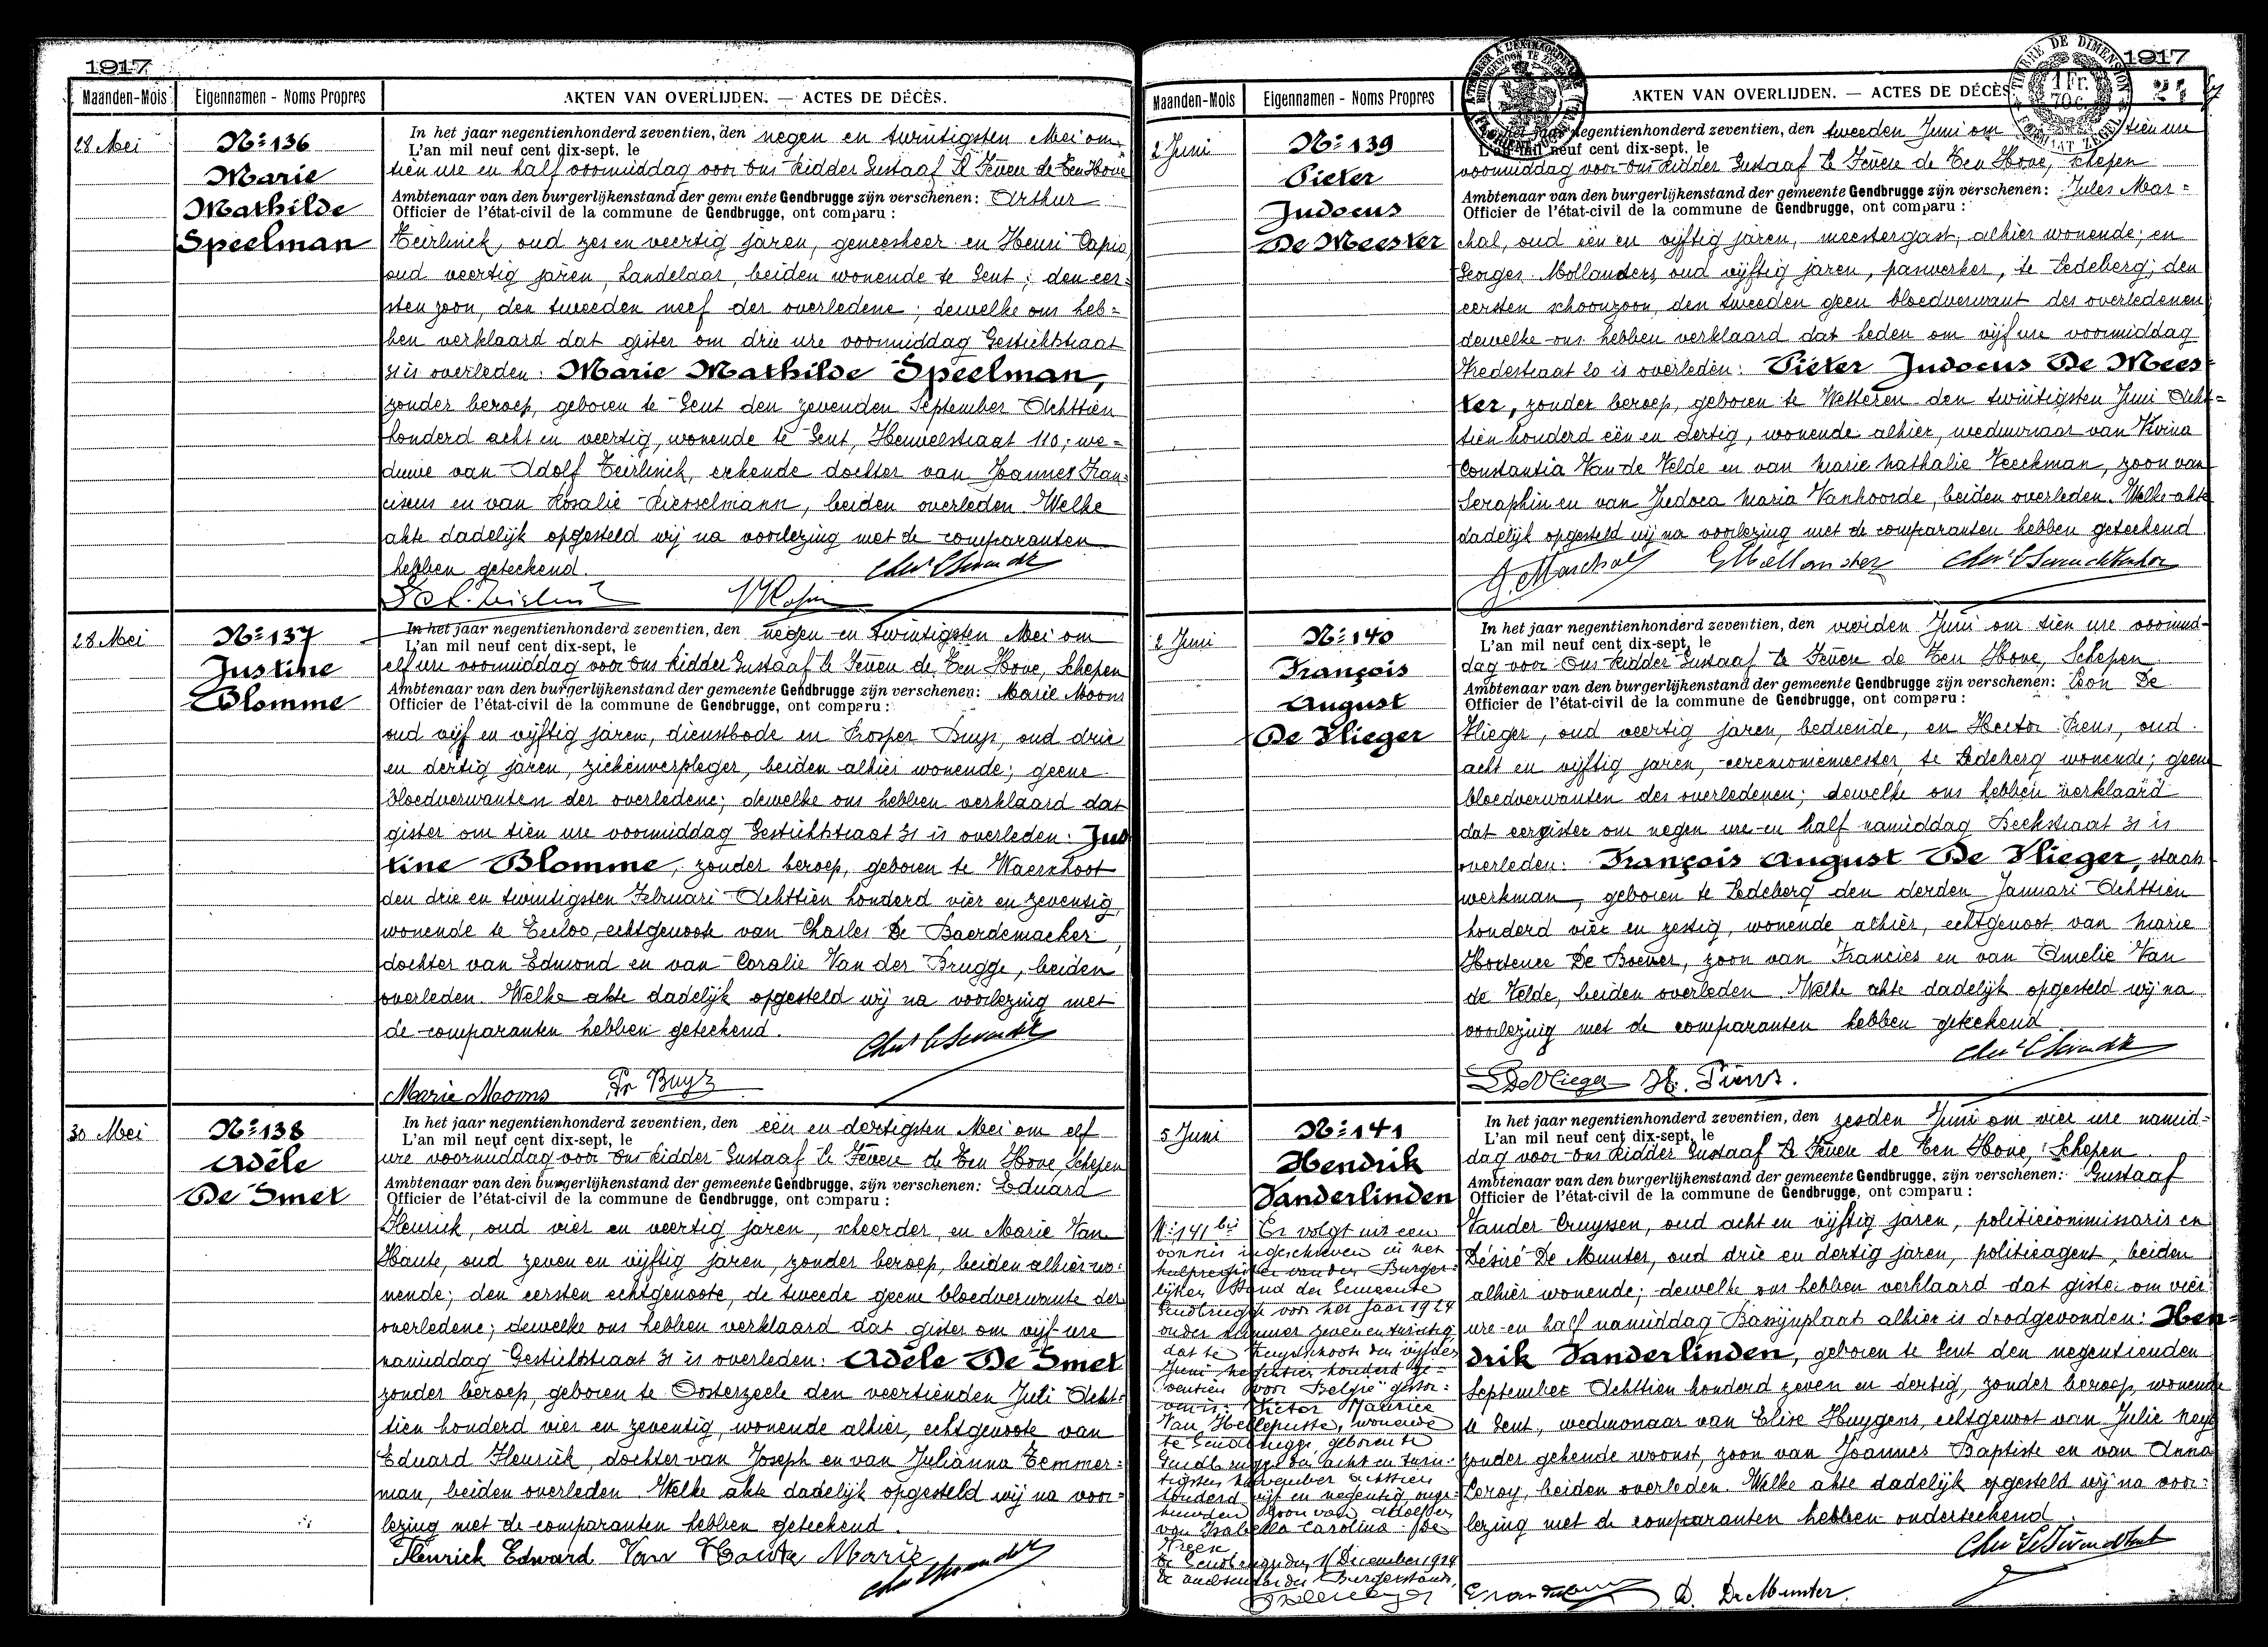 1917
Maanden-Mois
Eigennamen - Noms Propres
AKTEN VAN OVERLIJDEN. — ACTES DE DÉCÈS.
28 Mei
No 136
Marie
Mathilde
Speelman
In het jaar negentienhonderd zeventien, den negen en twintigsten Mei om
L'an mil neuf cent dix-sept, le
tien ure en half voormiddag voor Ons Ridder Gustaaf de Ten Hove
Ambtenaar van den burgerlijkenstand der gemeente Gendbrugge zijn verschenen: Arthur
Officier de l'état-civil de la commune de Gendbrugge, ont comparu :
Teirlinck, oud zes en veertig jaren, geneesheer en Henri
oud veertig jaren, handelaar, beiden wonende te Gent; den eer=
sten zoon, den tweeden neef der overledene; dewelke ons heb=
ben verklaard dat gister om drie ure voormiddag Gestichtstraat
31 is overleden: Marie Mathilde Speelman,
zonder beroep, geboren te Gent den zevenden September Achttien
honderd acht en veertig, wonende te Gent, Heuvelstraat 110; we=
duwe van Adolf Teirlinck, erkende dochter van Joannes Fran=
ciscus en van Rosalie beiden overleden. Welke
akte dadelijk opgesteld wij na voorlezing met de comparanten
hebben geteekend.
28 Mei
No 137
Justine
Blomme
In het jaar negentienhonderd zeventien, den negen en twintigsten Mei om
L'an mil neuf cent dix-sept, le
elf ure voormiddag voor Ons Ridder Gustaaf de Ten Hove, Schepen
Ambtenaar van den burgerlijkenstand der gemeente Gendbrugge zijn verschenen: Marie Moons
Officier de l'état-civil de la commune de Gendbrugge, ont comparu :
oud vijf en vijftig jaren, dienstbode en Prosper Buys, oud drie
en dertig jaren, ziekenverpleger, beiden alhier wonende; geene
bloedverwanten der overledene; dewelke ons hebben verklaard dat
gister om tien ure voormiddag Gestichtstraat 31 is overleden: Jus
tine Blomme, zonder beroep, geboren te Waerschoot
den drie en twintigsten Februari Achttien honderd vier en zeventig,
wonende te Eecloo, echtgenoote van Charles De Baerdemaeker,
dochter van Edmond en van Coralie Van der Brugge, beiden
overleden. Welke akte dadelijk opgesteld wij na voorlezing met
de comparanten hebben geteekend.
Marie Moons Pr Buys
30 Mei
No 138
Adèle
De Smet
In het jaar negentienhonderd zeventien, den een en dertigsten Mei om elf
L'an mil neuf cent dix-sept, le
ure voormiddag voor Ons Ridder Gustaaf de Ten Hove, Schepen
Ambtenaar van den burgerlijkenstand der gemeente Gendbrugge, zijn verschenen: Eduard
Officier de l'état-civil de la commune de Gendbrugge, ont comparu :
Fleurick, oud vier en veertig jaren, scheerder, en Marie Van
Haute, oud zeven en vijftig jaren, zonder beroep, beiden alhier wo=
nende; den eersten echtgenoote, de tweede geene bloedverwante der
overledene; dewelke ons hebben verklaard dat gister om vijf ure
namiddag Gestichtstraat 31 is overleden: Adèle De Smet
zonder beroep, geboren te Oosterzeele den veertienden Juli Acht=
tien honderd vier en zeventig, wonende alhier, echtgenoote van
Eduard Fleurick, dochter van Joseph en van Julianna Temmer=
man, beiden overleden. Welke akte dadelijk opgesteld wij na voor=
lezing met de comparanten hebben geteekend.
Fleurick Edward Van Haute Marie
1917
Maanden-Mois
Eigennamen - Noms Propres
AKTEN VAN OVERLIJDEN. — ACTES DE DÉCÈS
TIMBRE DE DIMENSION
1 Fr.
70 c.
2 Juni
No 139
Pieter
Judocus
De Meester
In het jaar negentienhonderd zeventien, den tweeden Juni om tien ure
L'an mil neuf cent dix-sept, le
voormiddag voor Ons Ridder Gustaaf de Ten Hove, Schepen
Ambtenaar van den burgerlijkenstand der gemeente Gendbrugge zijn verschenen: Jules Mar=
Officier de l'état-civil de la commune de Gendbrugge, ont comparu :
chal, oud een en vijftig jaren, meestergast, alhier wonende; en
Georges Mollanders, oud vijftig jaren, paswerker, te Ledeberg; den
eersten schoonzoon, den tweeden geen bloedverwant des overledenen;
dewelke ons hebben verklaard dat heden om vijf ure voormiddag
Vredestraat 20 is overleden: Pieter Judocus De Mees=
ter, zonder beroep, geboren te Wetteren den twintigsten Juni Acht=
tien honderd een en dertig, wonende alhier, weduwnaar van
Constantia Van de Velde en van Marie Nathalie Veeckman, zoon van
Seraphin en van Judoca Maria Vanhoorde, beiden overleden. Welke akte
dadelijk opgesteld wij na voorlezing met de comparanten hebben geteekend.
2 Juni
No 140
François
August
De Vlieger
In het jaar negentienhonderd zeventien, den vierden Juni om tien ure voormid=
L'an mil neuf cent dix-sept, le
dag voor Ons Ridder Gustaaf de Ten Hove, Schepen
Ambtenaar van den burgerlijkenstand der gemeente Gendbrugge zijn verschenen: Leon De
Officier de l'état-civil de la commune de Gendbrugge, ont comparu :
Vlieger, oud veertig jaren, bediende, en Hector Piens, oud
acht en vijftig jaren, ceremoniemeester, te Ledeberg wonende; geene
bloedverwanten des overledenen; dewelke ons hebben verklaard
dat eergister om negen ure en half namiddag Beekstraat 31 is
overleden: François August De Vlieger,
werkman, geboren te Ledeberg den derden Januari Achttien
honderd vier en zestig, wonende alhier, echtgenoot van Marie
Hortence De Boever, zoon van Francies en van Amelie Van
de Velde, beiden overleden. Welke akte dadelijk opgesteld wij na
voorlezing met de comparanten hebben geteekend.
De Vlieger H. Piens.
5 Juni
No 141
Hendrik
Vanderlinden
In het jaar negentienhonderd zeventien, den zesden Juni om vier ure namid=
L'an mil neuf cent dix-sept, le
dag voor Ons Ridder Gustaaf de Ten Hove, Schepen
Ambtenaar van den burgerlijkenstand der gemeente Gendbrugge, zijn verschenen: Gustaaf
Officier de l'état-civil de la commune de Gendbrugge, ont comparu :
Vander Cruyssen, oud acht en vijftig jaren, politiecommissaris en
Désiré De Munter, oud drie en dertig jaren, politieagent, beiden
alhier wonende; dewelke ons hebben verklaard dat gister om vier
ure en half namiddag alhier is doodgevonden: Hen=
drik Vanderlinden, geboren te Gent den negentienden
September Achttien honderd zeven en dertig, zonder beroep, wonende
te Gent, weduwnaar van Elise Huygens, echtgenoot van Julie
zonder gekende woonst, zoon van Joannes Baptiste en van Anna
Leroy, beiden overleden. Welke akte dadelijk opgesteld wij na voor=
lezing met de comparanten hebben onderteekend.
D. De Munter.
No 141 bis Er volgt uit een
vonnis ingeschreven in het
hulpregister van den Burger=
lijken Stand der Gemeente
Gendbrugge voor het jaar 1924
onder nummer zevenentwintig
dat te den vijfden
Juni negentien honderd ze=
ventien "voor België" gestor=
ven is: Victor Maurice
Van Hellepuste, wonende
te Gendbrugge geboren te
Gendbrugge den acht en twin=
tigsten November achttien
honderd vijf en negentig, onge=
huwden zoon van Adolf en
van Isabella Carolina De
Gendbrugge den December 1924
De ambtenaar des Burgerstands,